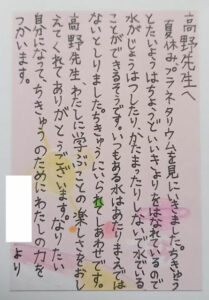 高野先生へ
夏休みプラネタリウムを見にいきました。ちきゅう
とたいようはちょうどいいきょりをはなれているので
水がじょうはつしたりかたまったりしないで水でいる
ことができるそうです。いつもある水はあたりまえでは
ないとしりました。ちきゅうにいられてしあわせです。
高野先生、わたしに学ぶことの楽しさをおし
えてくれてありがとうございます。なりたい
自分になって、ちきゅうのためにわたしの力を
つかいます。
より